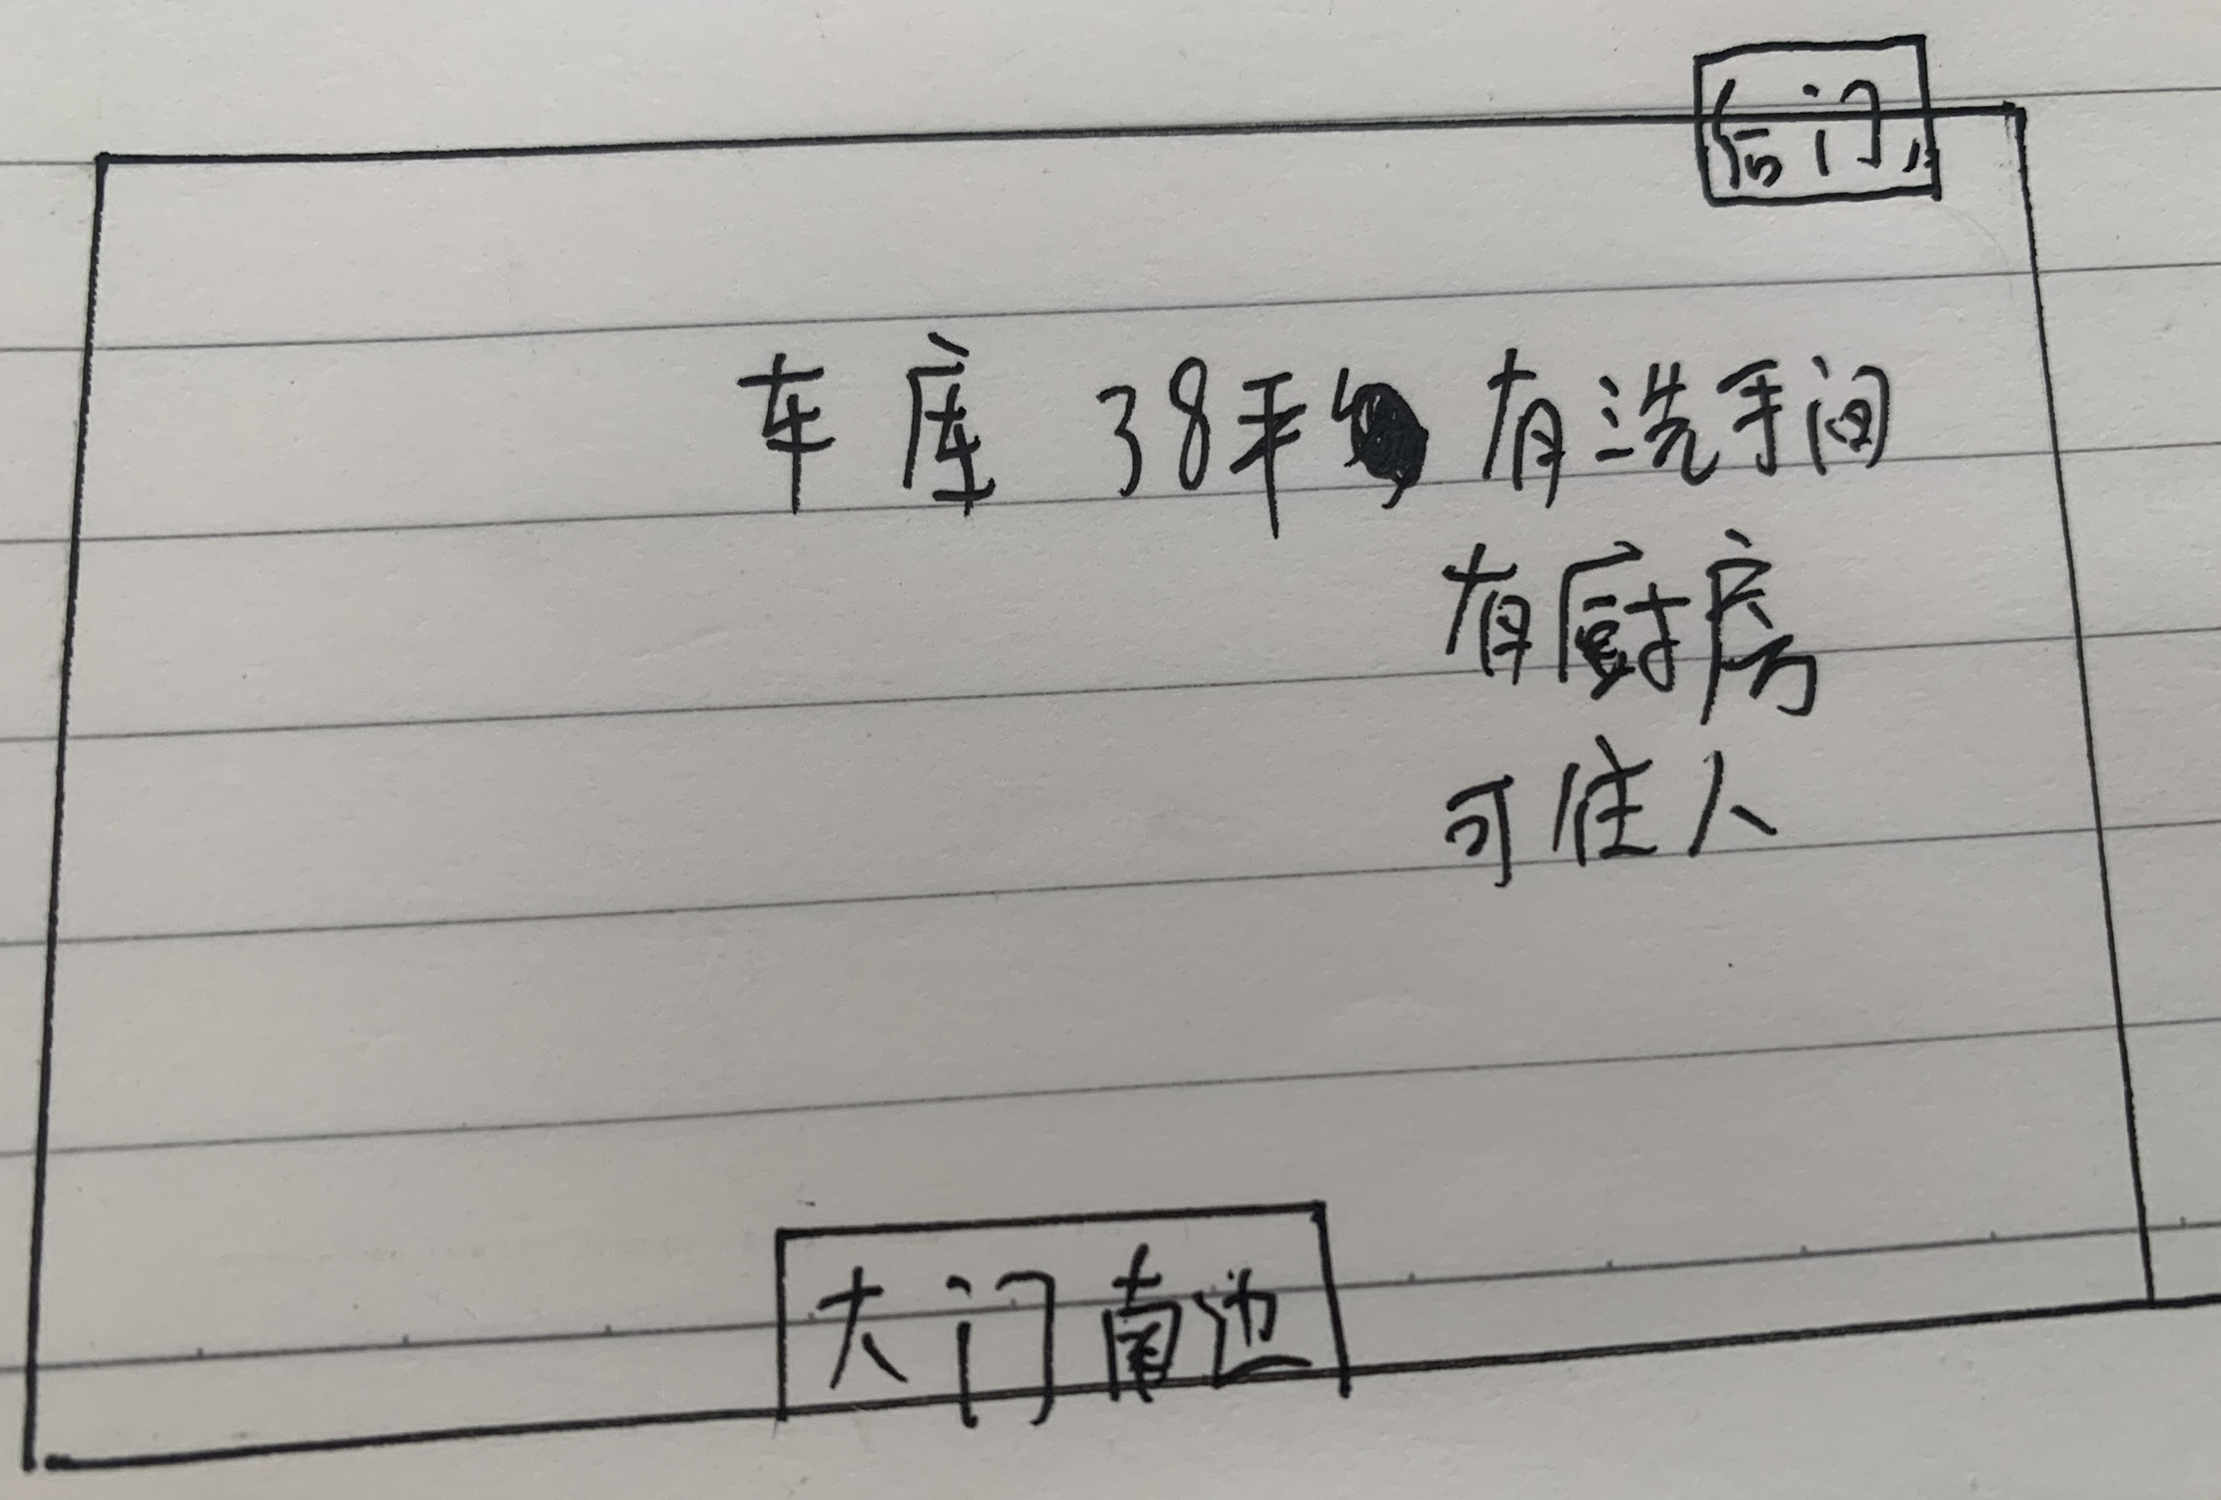 后门
车库 38平 有洗手间
有厨房
可住人
大门南边